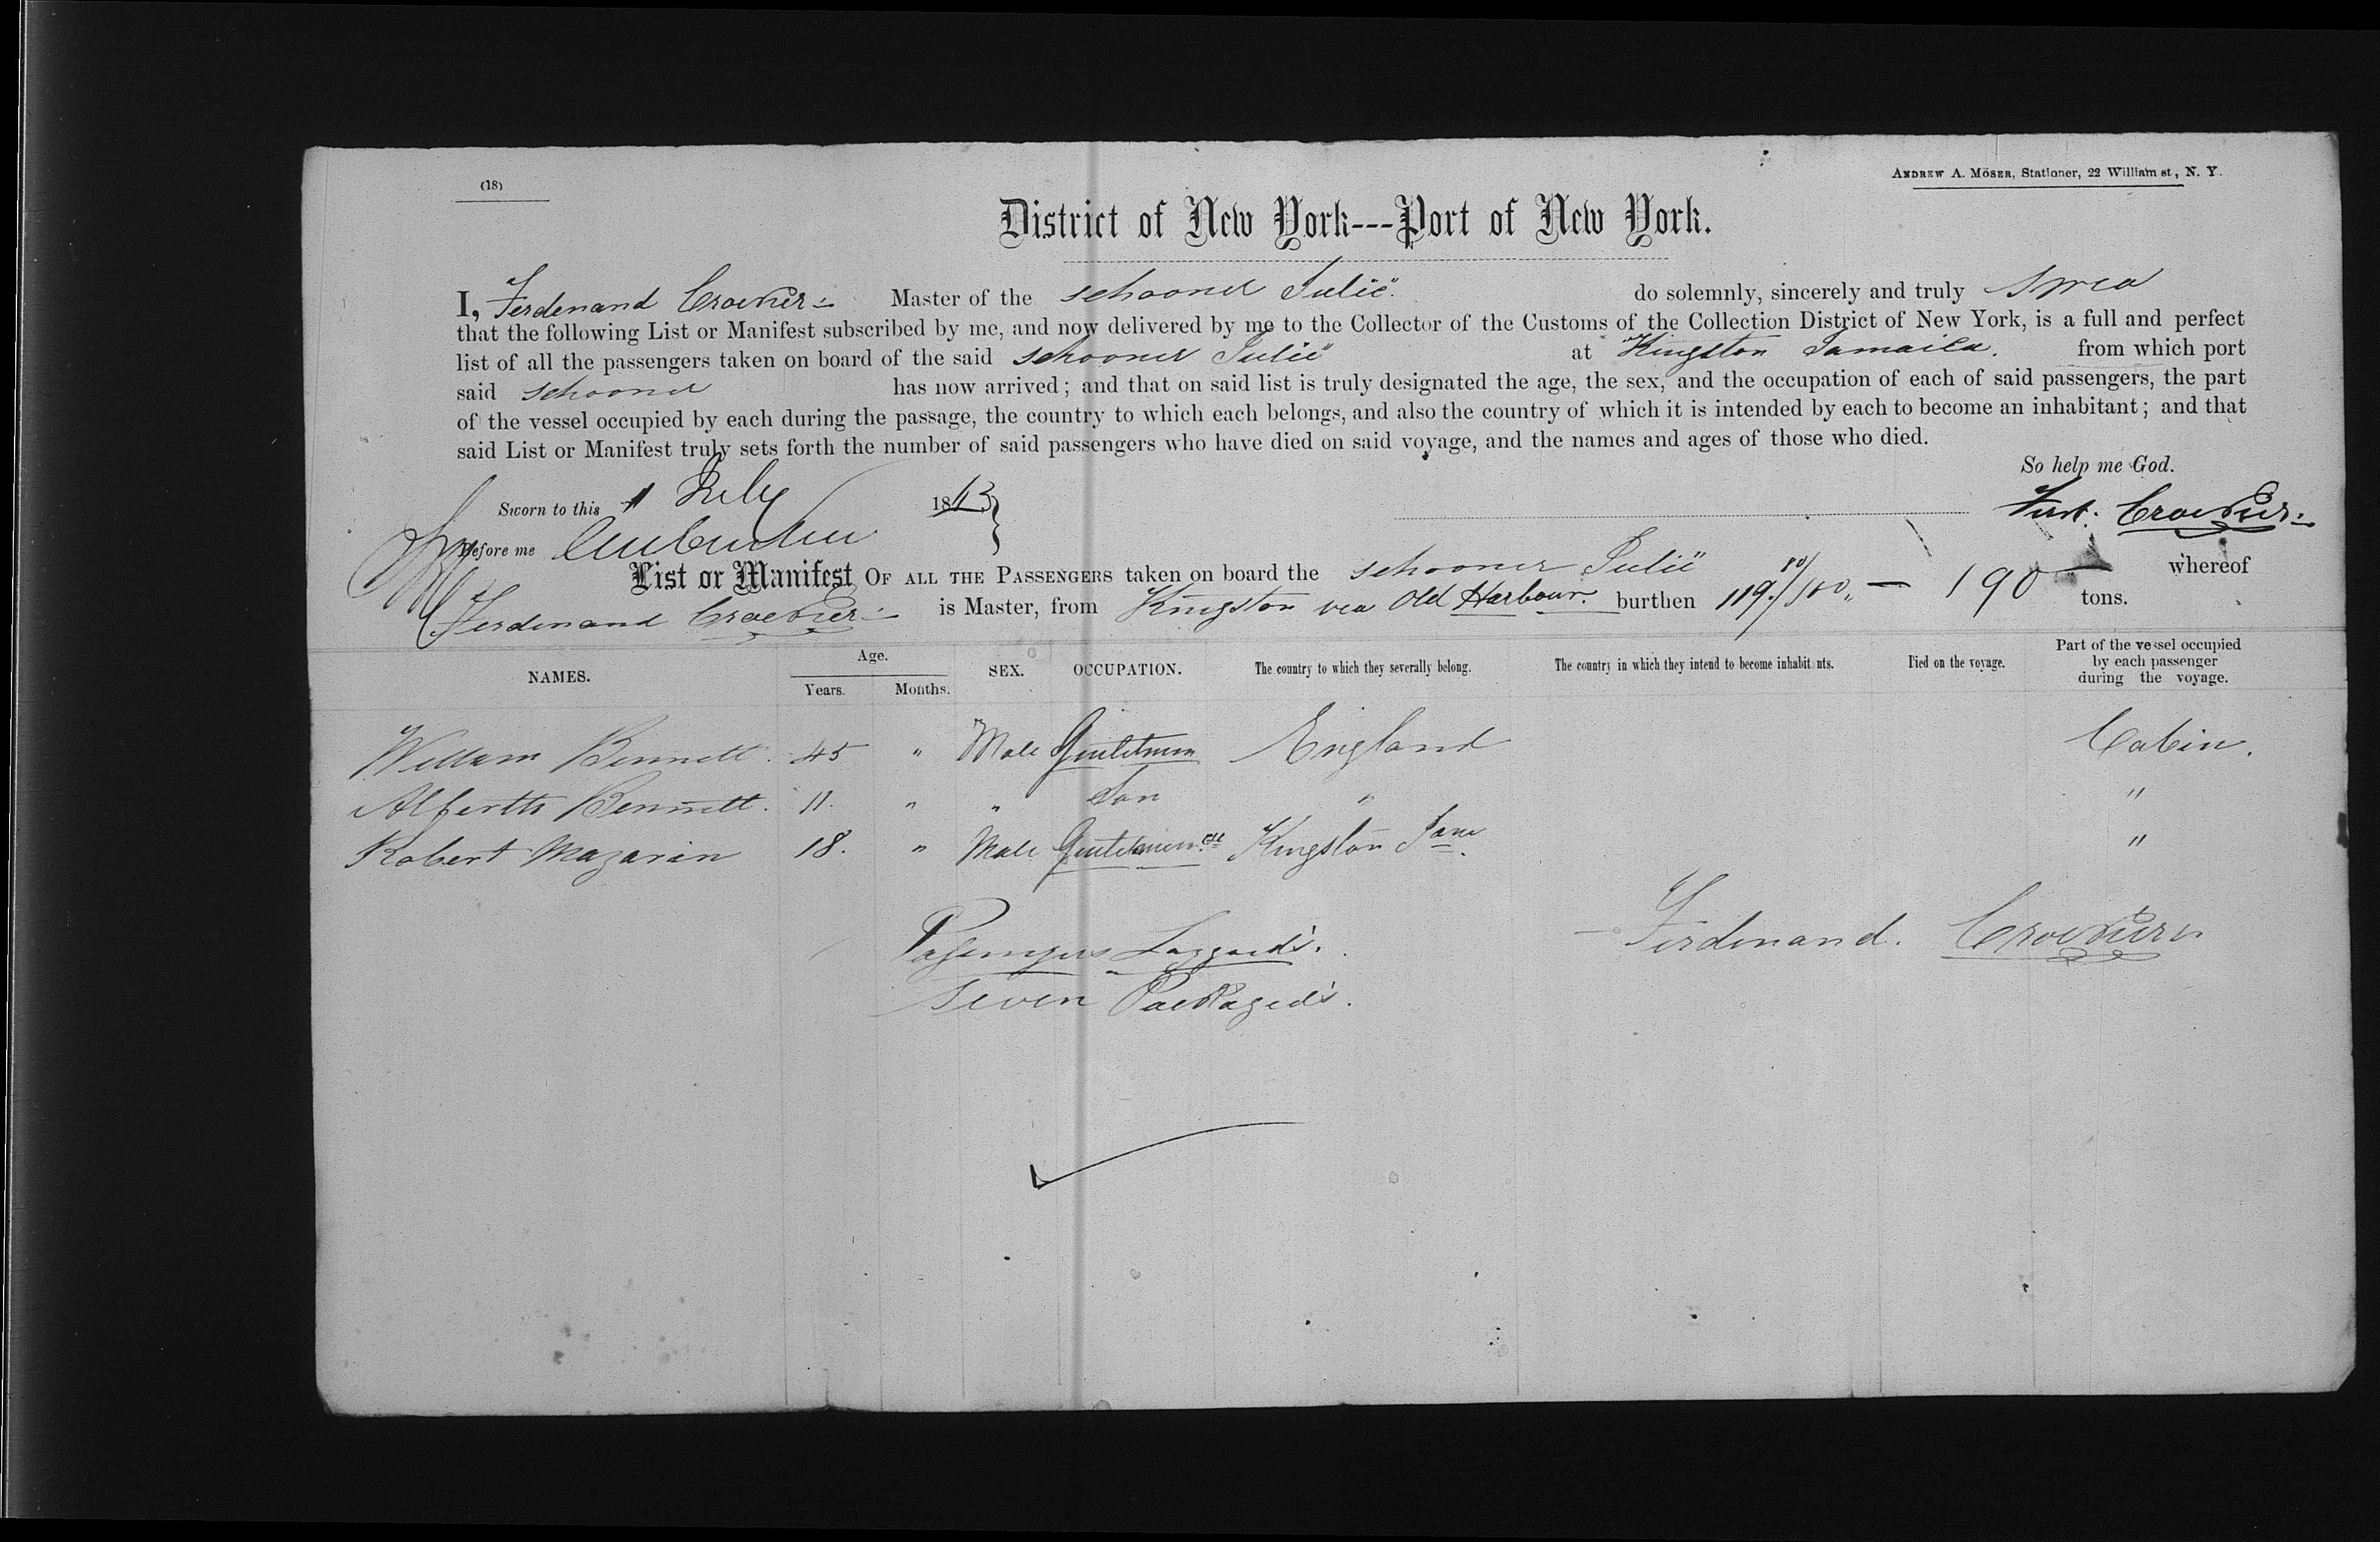 (18)
ANDREW A. MÖSER, Stationer, 22 William st, N. Y.
District of New York---Port of New York.
I, Ferdenand Master of the schooner Julie do solemnly, sincerely and truly
that the following List or Manifest subscribed by me, and now delivered by me to the Collector of the Customs of the Collection District of New York, is a full and perfect
list of all the passengers taken on board of the said schooner Julie at Kingston Jamaica. from which port
said schooner has now arrived; and that on said list is truly designated the age, the sex, and the occupation of each of said passengers, the part
of the vessel occupied by each during the passage, the country to which each belongs, and also the country of which it is intended by each to become an inhabitant; and that
said List or Manifest truly sets forth the number of said passengers who have died on said voyage, and the names and ages of those who died.
So help me God.
Sworn to this July 18
Before me
List or Manifest OF ALL THE PASSENGERS taken on board the schooner Julie whereof
Ferdenand is Master, from Kingston via Old Harbour. burthen 119. 80/100 — 190 tons.
NAMES. Age. Years. Months. SEX. OCCUPATION. The country to which they severally belong. The country in which they intend to become inhabitants. Died on the voyage. Part of the vessel occupied by each passenger during the voyage.
William Bennett. 45 " Male Gentleman England Cabin.
Bennett. 11. " " Son " "
Robert Mazarin 18. " Male Kingston Jam. "
Ferdenand.
Seven Packaged's.